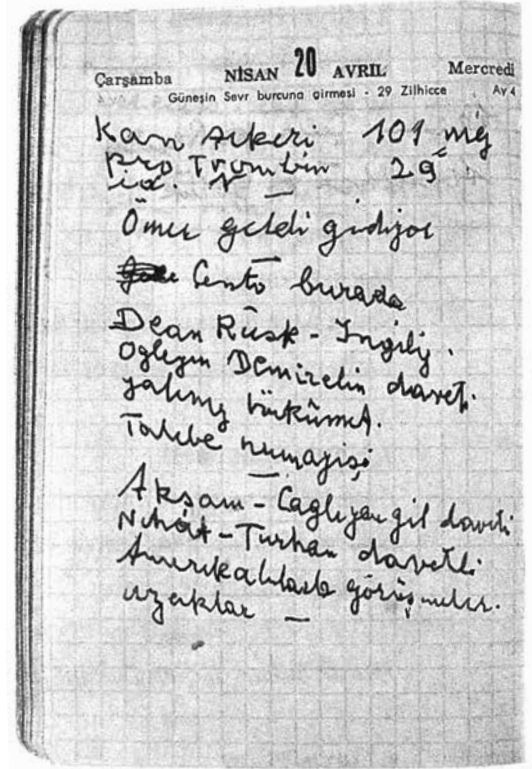 Çarşamba NİSAN 20 AVRIL Mercredi
Güneşin Sevr burcuna girmesi - 29 Zilhicce Ay 4
Kan şekeri 101 mg
Pro Trombin 29"
id.
Ömer geldi gidiyor
Cento burada
Dean Rusk - İngiliz.
Öğleyin Demirelin daveti
yalnız hükümet.
Talebe numayişi
Akşam - Çağlayangil daveti
Nihat - Turhan davetli
Amerikalılarla görüşmeler.
uzaklar —